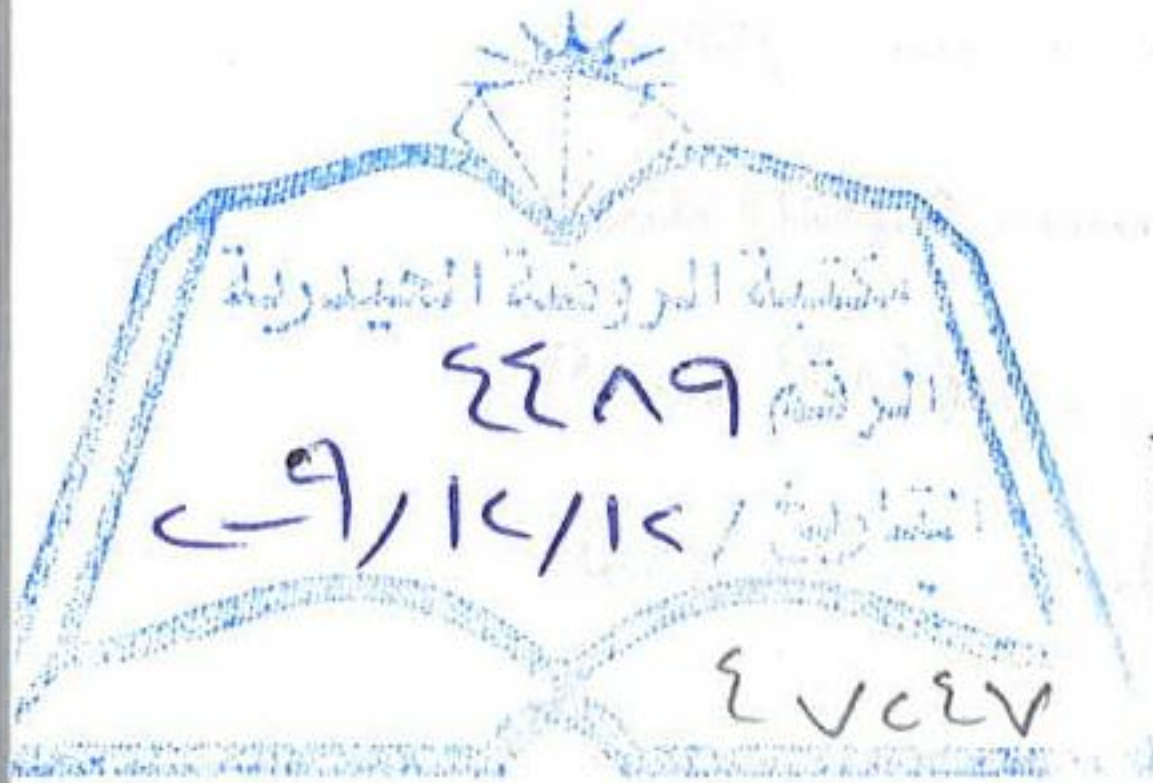 مكتبة الروضة الحيدرية
الرقم ٤٤٨٩
التاريخ / ١٢/١٢/
٤٧٢٤٧